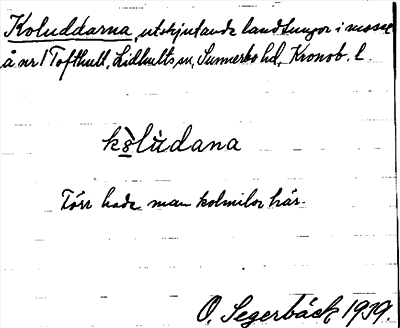 Koluddarna, utskjutande landtungor i mosse
å nr 1 Tofthult, Lidhults sn, Sunnerbo hd, Kronob. l.
kòlùdana
Förr hade man kolmilor här.
O. Segerbäck 1939.